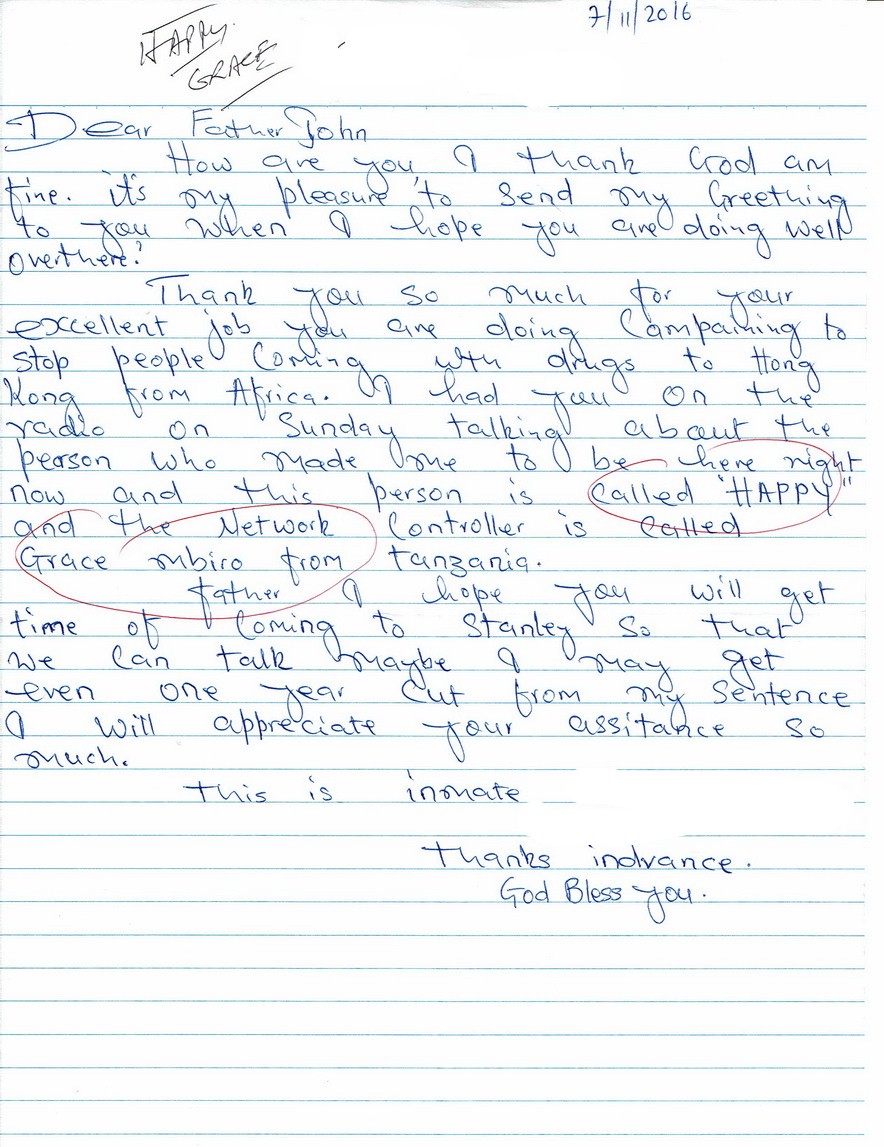 7/11/2016
HAPPY.
GRACE
Dear Father John
How are you I thank God am
fine. it's my pleasure to send my Greething
to you when I hope you are doing well
overthere?
Thank you so much for your
excellent job you are doing Campaining to
stop people Coming with drugs to Hong
Kong from Africa. I had you on the
radio on Sunday talking about the
person who made me to be here right
now and this person is called "HAPPY"
and the Network Controller is called
Grace mbiro from tanzania.
father I hope you will get
time of Coming to Stanley so that
we can talk maybe I may get
even one year cut from my sentence
I will appreciate your assitance so
much.
this is inmate
thanks indvance.
God Bless you.